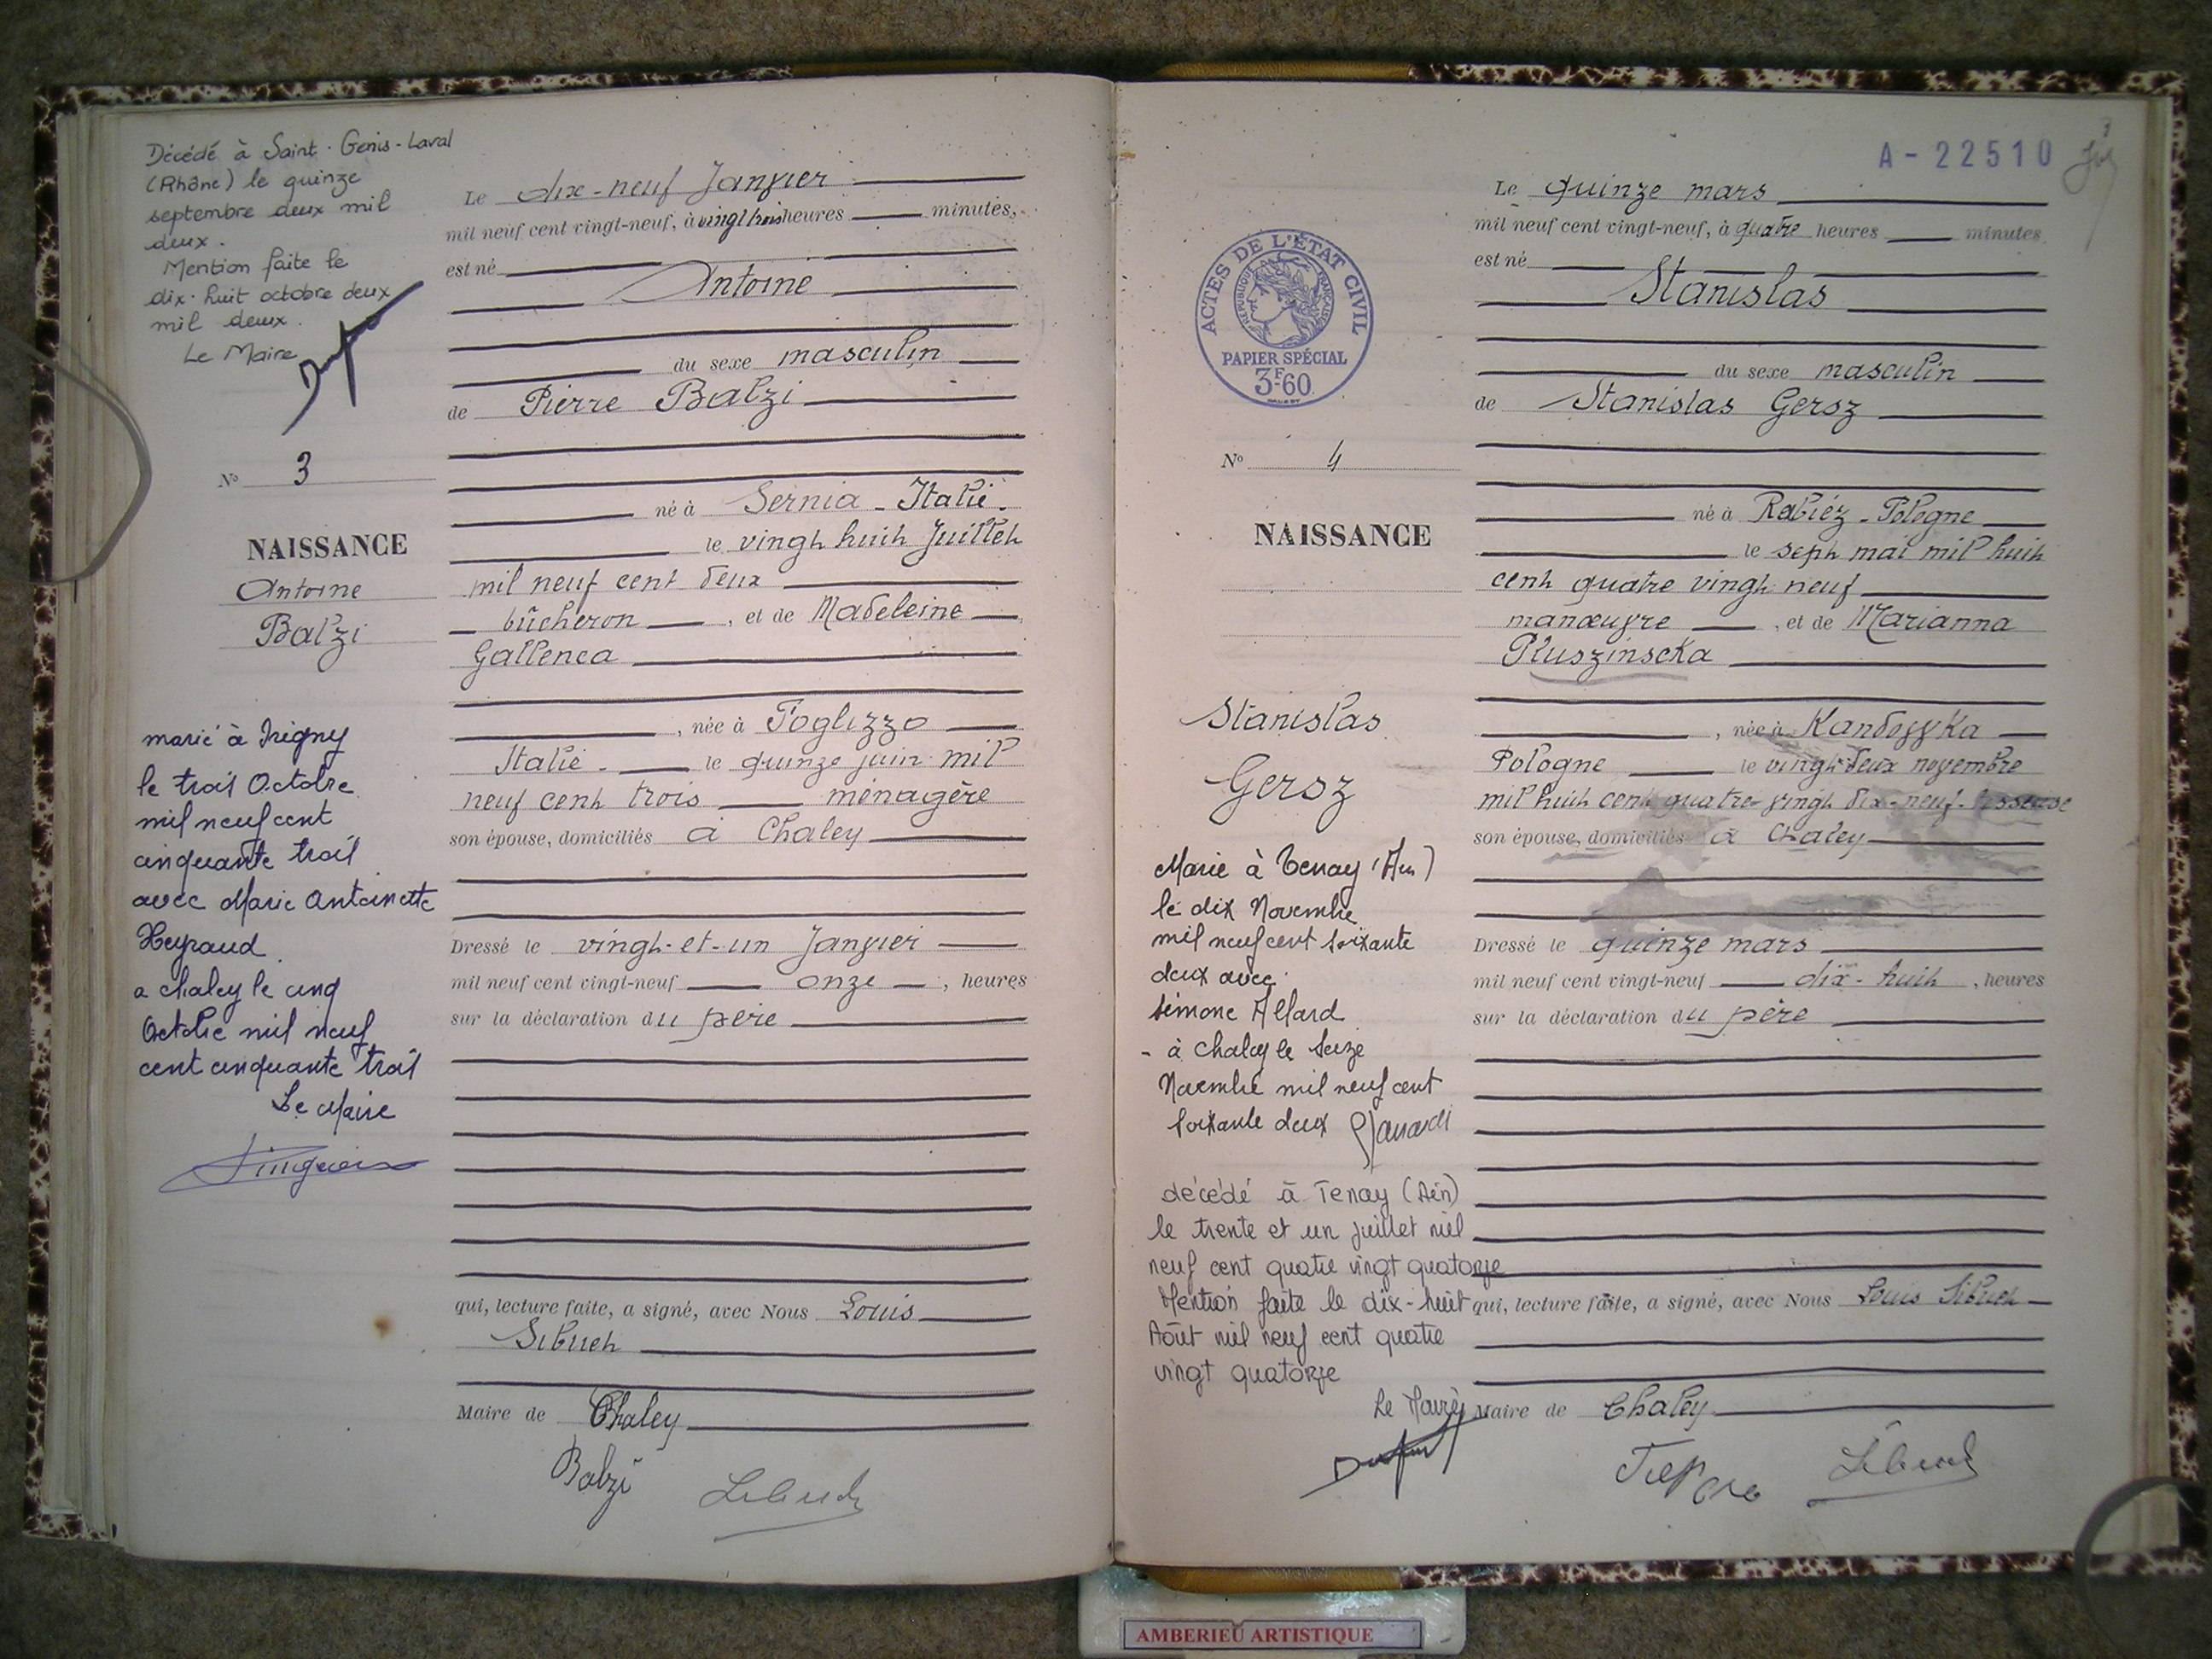 Décédé à Saint-Genis-Laval
(Rhône) le quinze
septembre deux mil
deux.
Mention faite le
dix-huit octobre deux
mil deux.
Le Maire
N° 3
NAISSANCE
Antoine
Balzi
marié à Irigny
le trois Octobre
mil neuf cent
cinquante trois
avec Marie Antoinette
Heyraud
a chaley le cinq
Octobre mil neuf
cent cinquante trois
Le Maire
Le dix-neuf Janvier
mil neuf cent vingt-neuf, à vingt trois heures minutes,
est né
Antoine
du sexe masculin
de Pierre Balzi
né à Sernia - Italie.
le vingt huit Juillet
mil neuf cent deux
bûcheron, et de Madeleine
Gallenca
, née à Foglizzo
Italie - le quinze juin mil
neuf cent trois ménagère
son épouse, domiciliés à Chaley
Dressé le vingt-et-un Janvier
mil neuf cent vingt-neuf onze, heures
sur la déclaration du père
qui, lecture faite, a signé, avec Nous Louis
Sibuet
Maire de Chaley
Balzi
A-22510
ACTES DE L'ÉTAT CIVIL
RÉPUBLIQUE FRANÇAISE
PAPIER SPÉCIAL
3F60
N° 4
NAISSANCE
Stanislas
Gersz
Marié à Tenay (Ain)
le dix Novembre
mil neuf cent soixante
deux avec
Simone Allard
- à chaley le seize
Novembre mil neuf cent
soixante deux
décédé à Tenay (Ain)
le trente et un juillet mil
neuf cent quatre vingt quatorze
Mention faite le dix-huit
Août mil neuf cent quatre
vingt quatorze
Le Maire
Le quinze mars
mil neuf cent vingt-neuf, à quatre heures minutes
est né
Stanislas
du sexe masculin
de Stanislas Gersz
né à Rabiéz - Pologne
le sept mai mil huit
cent quatre vingt neuf
manœuvre, et de Marianna
Pluszinscka
, née à Kandovvka
Pologne le vingt-deux novembre
mil huit cent quatre-vingt dix-neuf-
son épouse, domiciliés à Chaley
Dressé le quinze mars
mil neuf cent vingt-neuf dix-huit, heures
sur la déclaration du père
qui, lecture faite, a signé, avec Nous Louis Sibuet
Maire de Chaley
AMBERIEU ARTISTIQUE